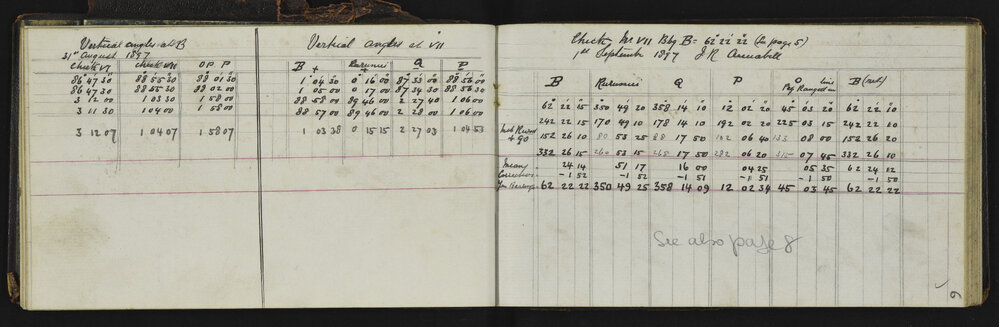 Vertical angles at B
31st August 1897
Check VI Check VII OP P
86 47 30 88 55 30 88 01 30
86 47 30 88 55 30 88 02 00
3 12 00 1 03 30 1 58 00
3 11 30 1 04 00 1 58 00
3 12 07 1 04 07 1 58 07
Vertical angles at VII
B + Q P
1° 04 30 0° 16 00 87 33 00 88 56 00
1 05 00 0 17 00 87 34 30 88 56 30
88 58 00 89 46 00 2 27 40 1 06 00
88 57 00 89 46 00 2 28 00 1 06 00
1 03 38 0 15 15 2 27 03 1 04 53
Check Mr VII Bdg B = 62° 22' 22 (See page 5)
1st September 1897 J R Annabell
B Q P O line B (rep)
Peg Ranged in
62° 22 15 350 49 20 358 14 10 12 01 20 45 03 20 62 22 10
242 22 15 170 49 10 178 14 10 192 02 20 225 03 15 242 22 10
+ 90 152 26 10 80 53 25 88 17 50 102 06 40 135 08 00 152 26 20
332 26 15 260 53 15 268 17 50 282 06 20 315 07 45 332 26 10
Mean 24 14 51 17 16 00 04 25 05 35 62 24 12
Correction -1 52 -1 52 -1 51 -1 51 -1 50 -1 50
62 22 22 350 49 25 358 14 09 12 02 34 45 03 45 62 22 22
See also page 8
6